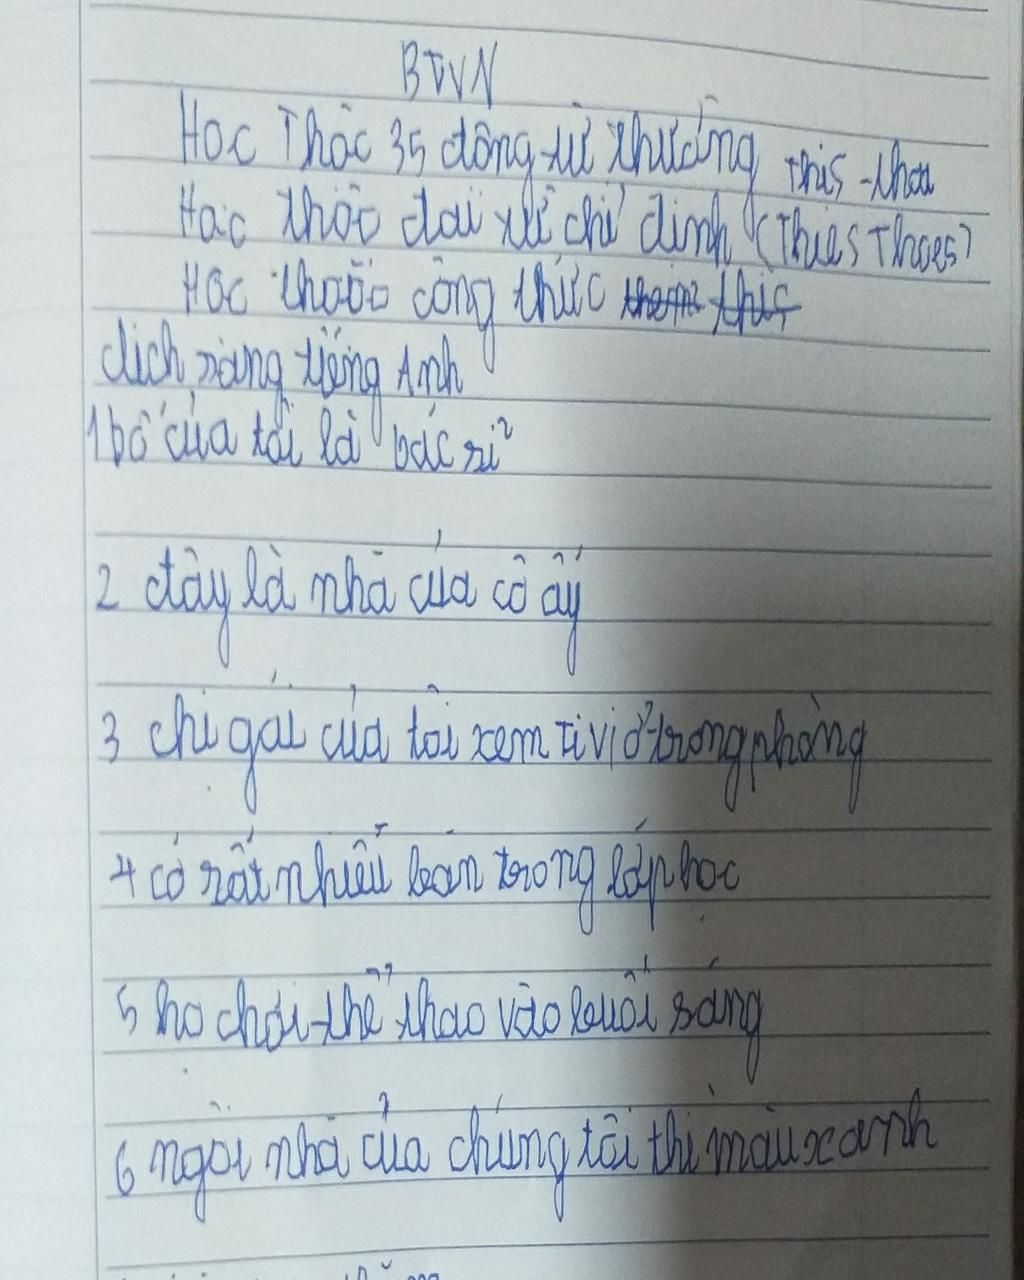 BTVN
Học Thộc 35 động từ thường This - that
Học thộc đại từ chỉ định (Thies Thoes)
Học thuộc công thức
dịch sang tiếng Anh
1 bố của tôi là bác sĩ
2 đây là nhà của cô ấy
3 chị gái của tôi xem Ti vi ở trong phòng
4 có rất nhiều bàn trong lớp học
5 họ chơi thể thao vào buổi sáng
6 ngôi nhà của chúng tôi thì màu xanh